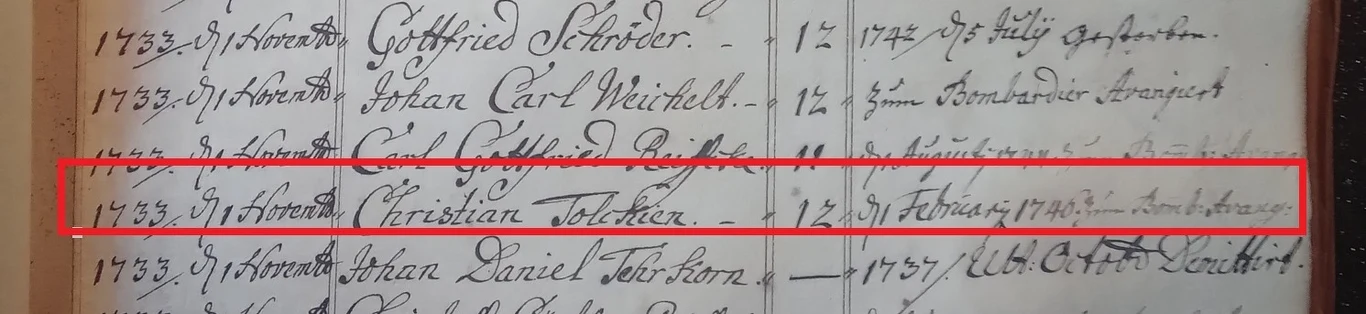 1733. d 1 Novemb Gottfried Schröder. - 12 1742 d 5 Julÿ Gestorben.
1733. d 1 Novemb Johan Carl Weichelt. - 12 Zum Bombardier Avangiert
1733. d 1 Novemb Carl Gottfried 11 d 1 August Zum Bomb: Avang
1733. d 1 Novemb Christian Tolckien. - 12 d 1 February 1746. Zum Bomb: Avang:
1733. d 1 Novemb Johan Daniel Fehrkorn. — 1737 Ult: Octob Demittirt.